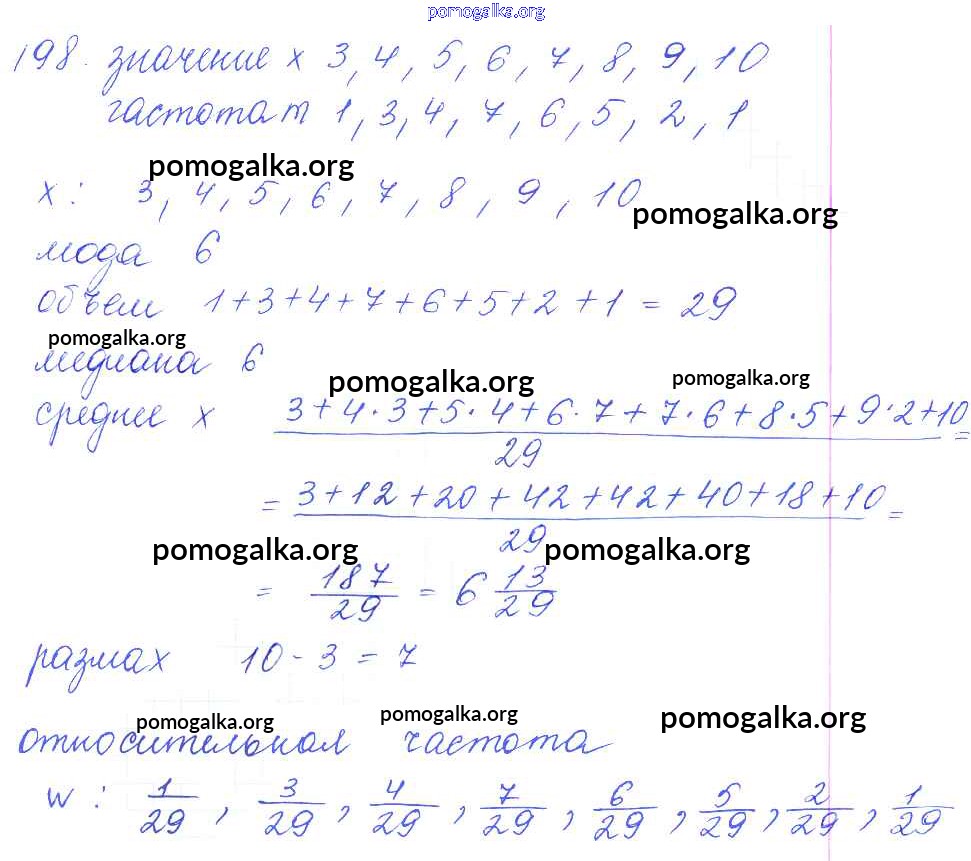 pomogalka.org
198. значение x 3, 4, 5, 6, 7, 8, 9, 10
частота m 1, 3, 4, 7, 6, 5, 2, 1
pomogalka.org
x: 3, 4, 5, 6, 7, 8, 9, 10
pomogalka.org
мода 6
объем 1+3+4+7+6+5+2+1 = 29
pomogalka.org
медиана 6
pomogalka.org pomogalka.org
среднее x 3+4·3+5·4+6·7+7·6+8·5+9·2+10 =
29
= 3+12+20+42+42+40+18+10 =
29
pomogalka.org pomogalka.org
= 187/29 = 6 13/29
размах 10 - 3 = 7
pomogalka.org pomogalka.org pomogalka.org
относительная частота
w: 1/29, 3/29, 4/29, 7/29, 6/29, 5/29, 2/29, 1/29